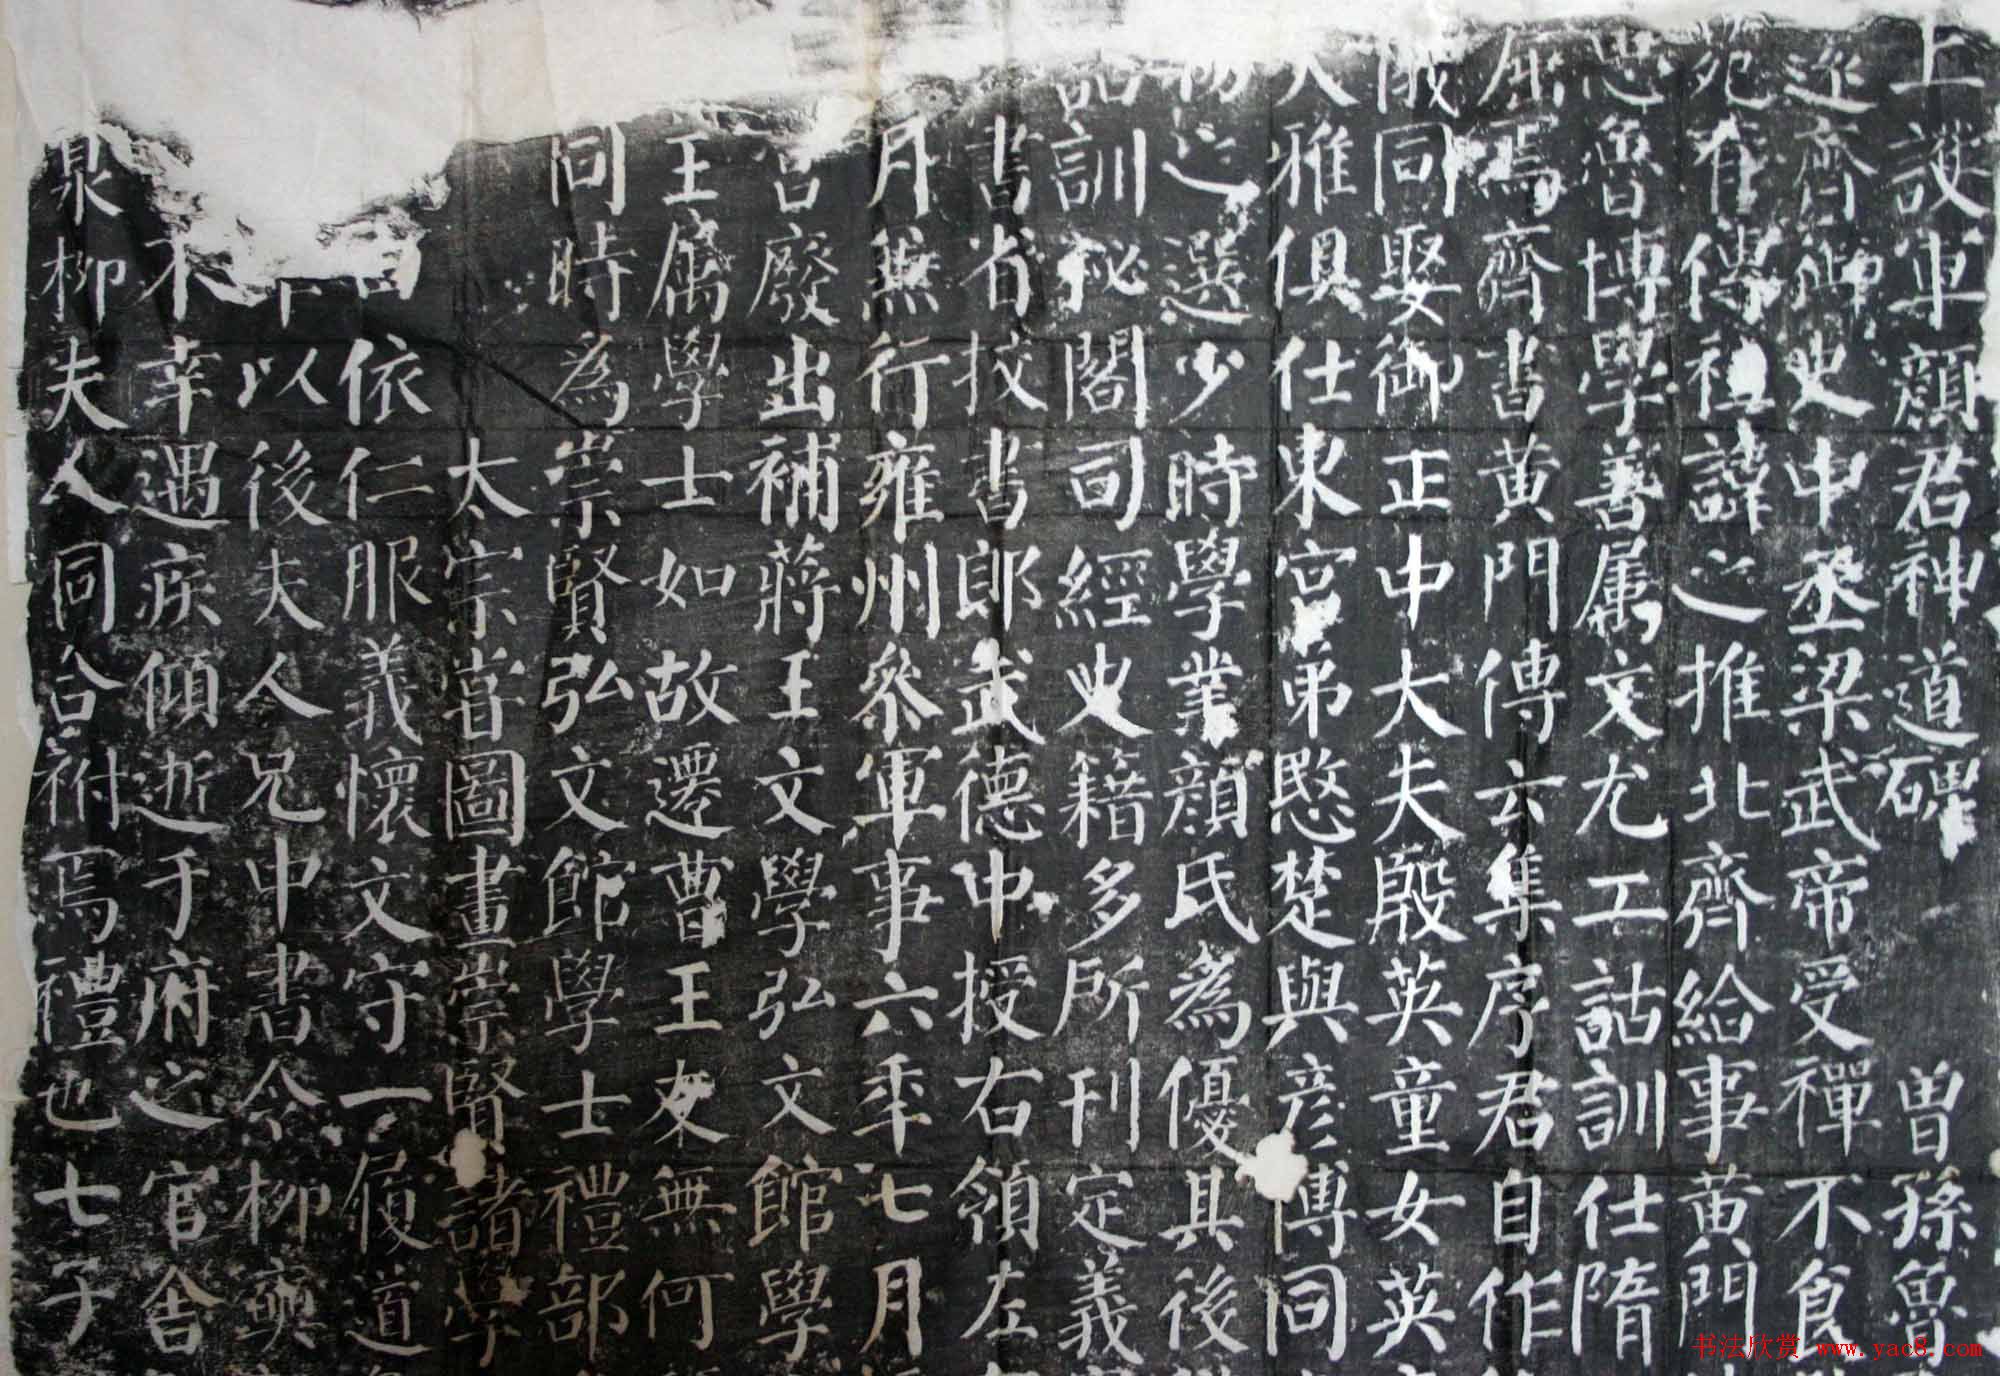 上護軍顏君神道碑 曾孫魯
逐齊御史中丞梁武帝受禪不食
宛有傳祖諱之推北齊給事黃門
愍魯博學善属文尤工詁訓仕隋
屈焉齊書黃門傳云集序君自作
同娶御正中大夫殷英童女英
人雅俱仕東宮弟愍楚與彥博同
之選少時學業顏氏為優其後
訓秘閣司經史籍多所刊定義
書省挍書郎武德中授右領左
月無行雍州參軍事六年七月
宮廢出補蔣王文學弘文館學
王属學士如故遷曹王友無何
同時為崇賢弘文館學士禮部
太宗嘗圖畫崇賢諸學
依仁服義懷文守一履道
以後夫人兄中書令柳奭
不幸遇疾傾逝于府之官舍
泉柳夫人同合祔焉禮也七子
书法欣赏 www.yac8.com